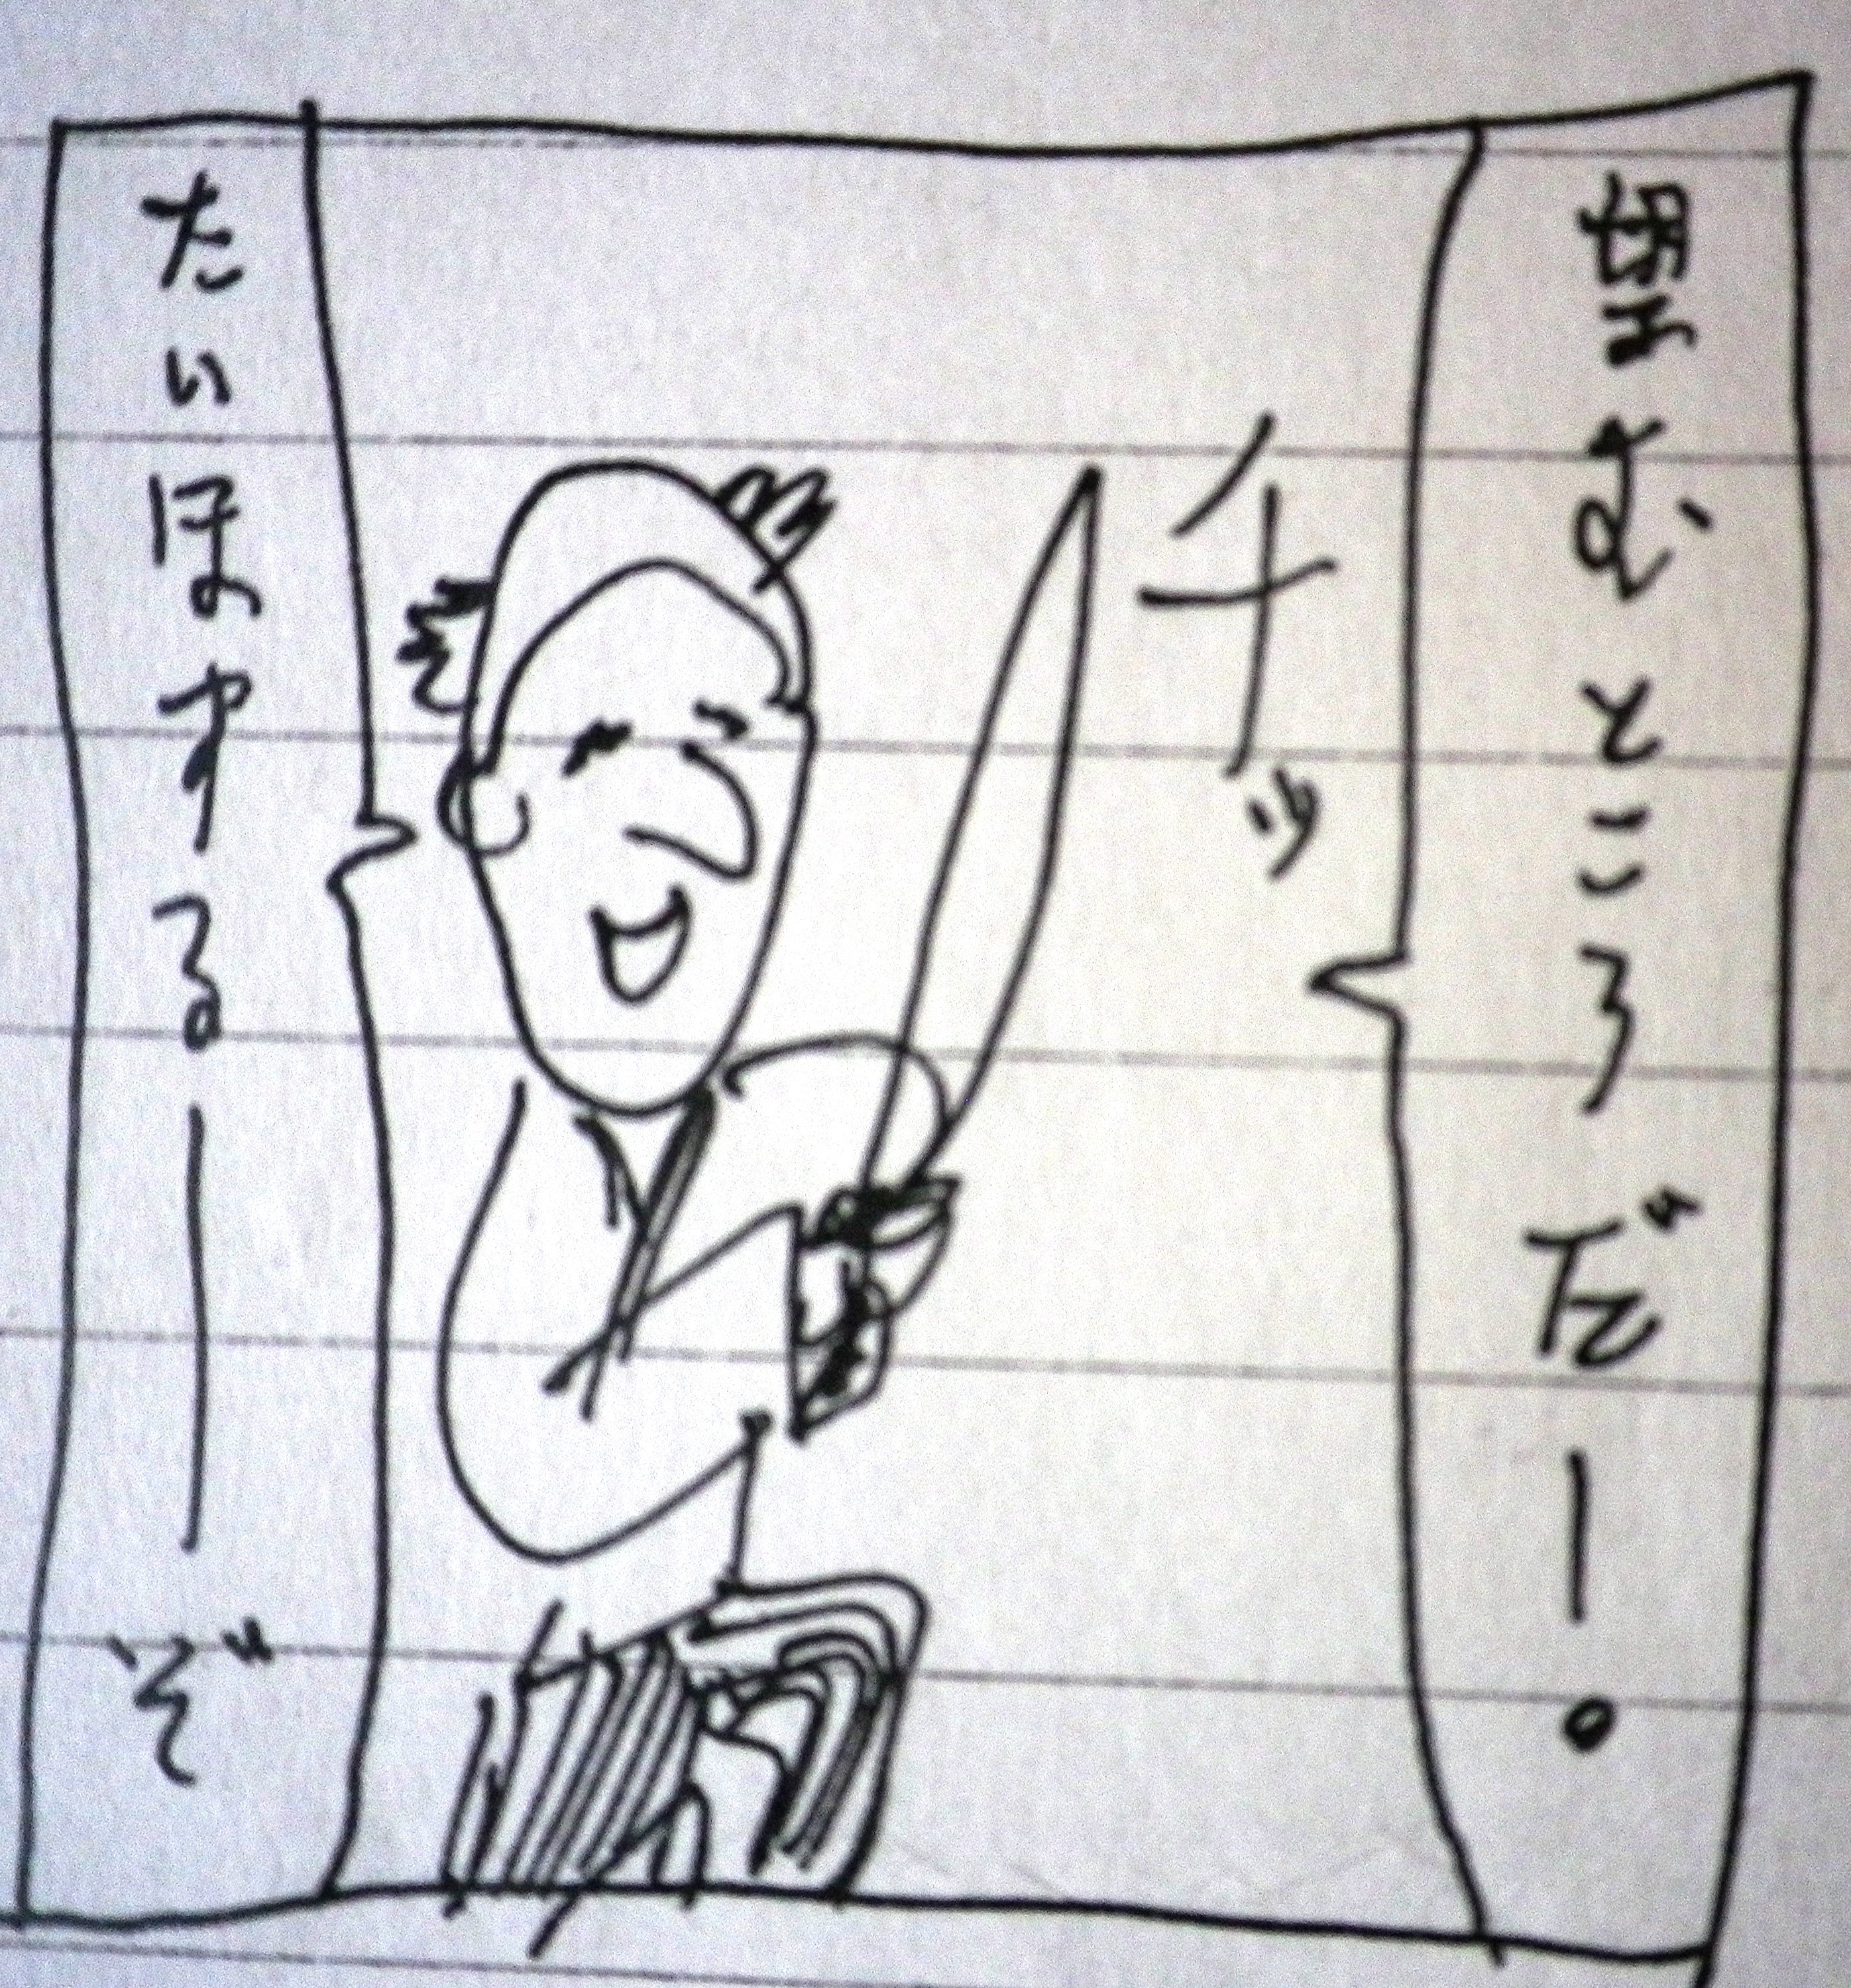 望むところだー。
チッ
たいほするーぞ